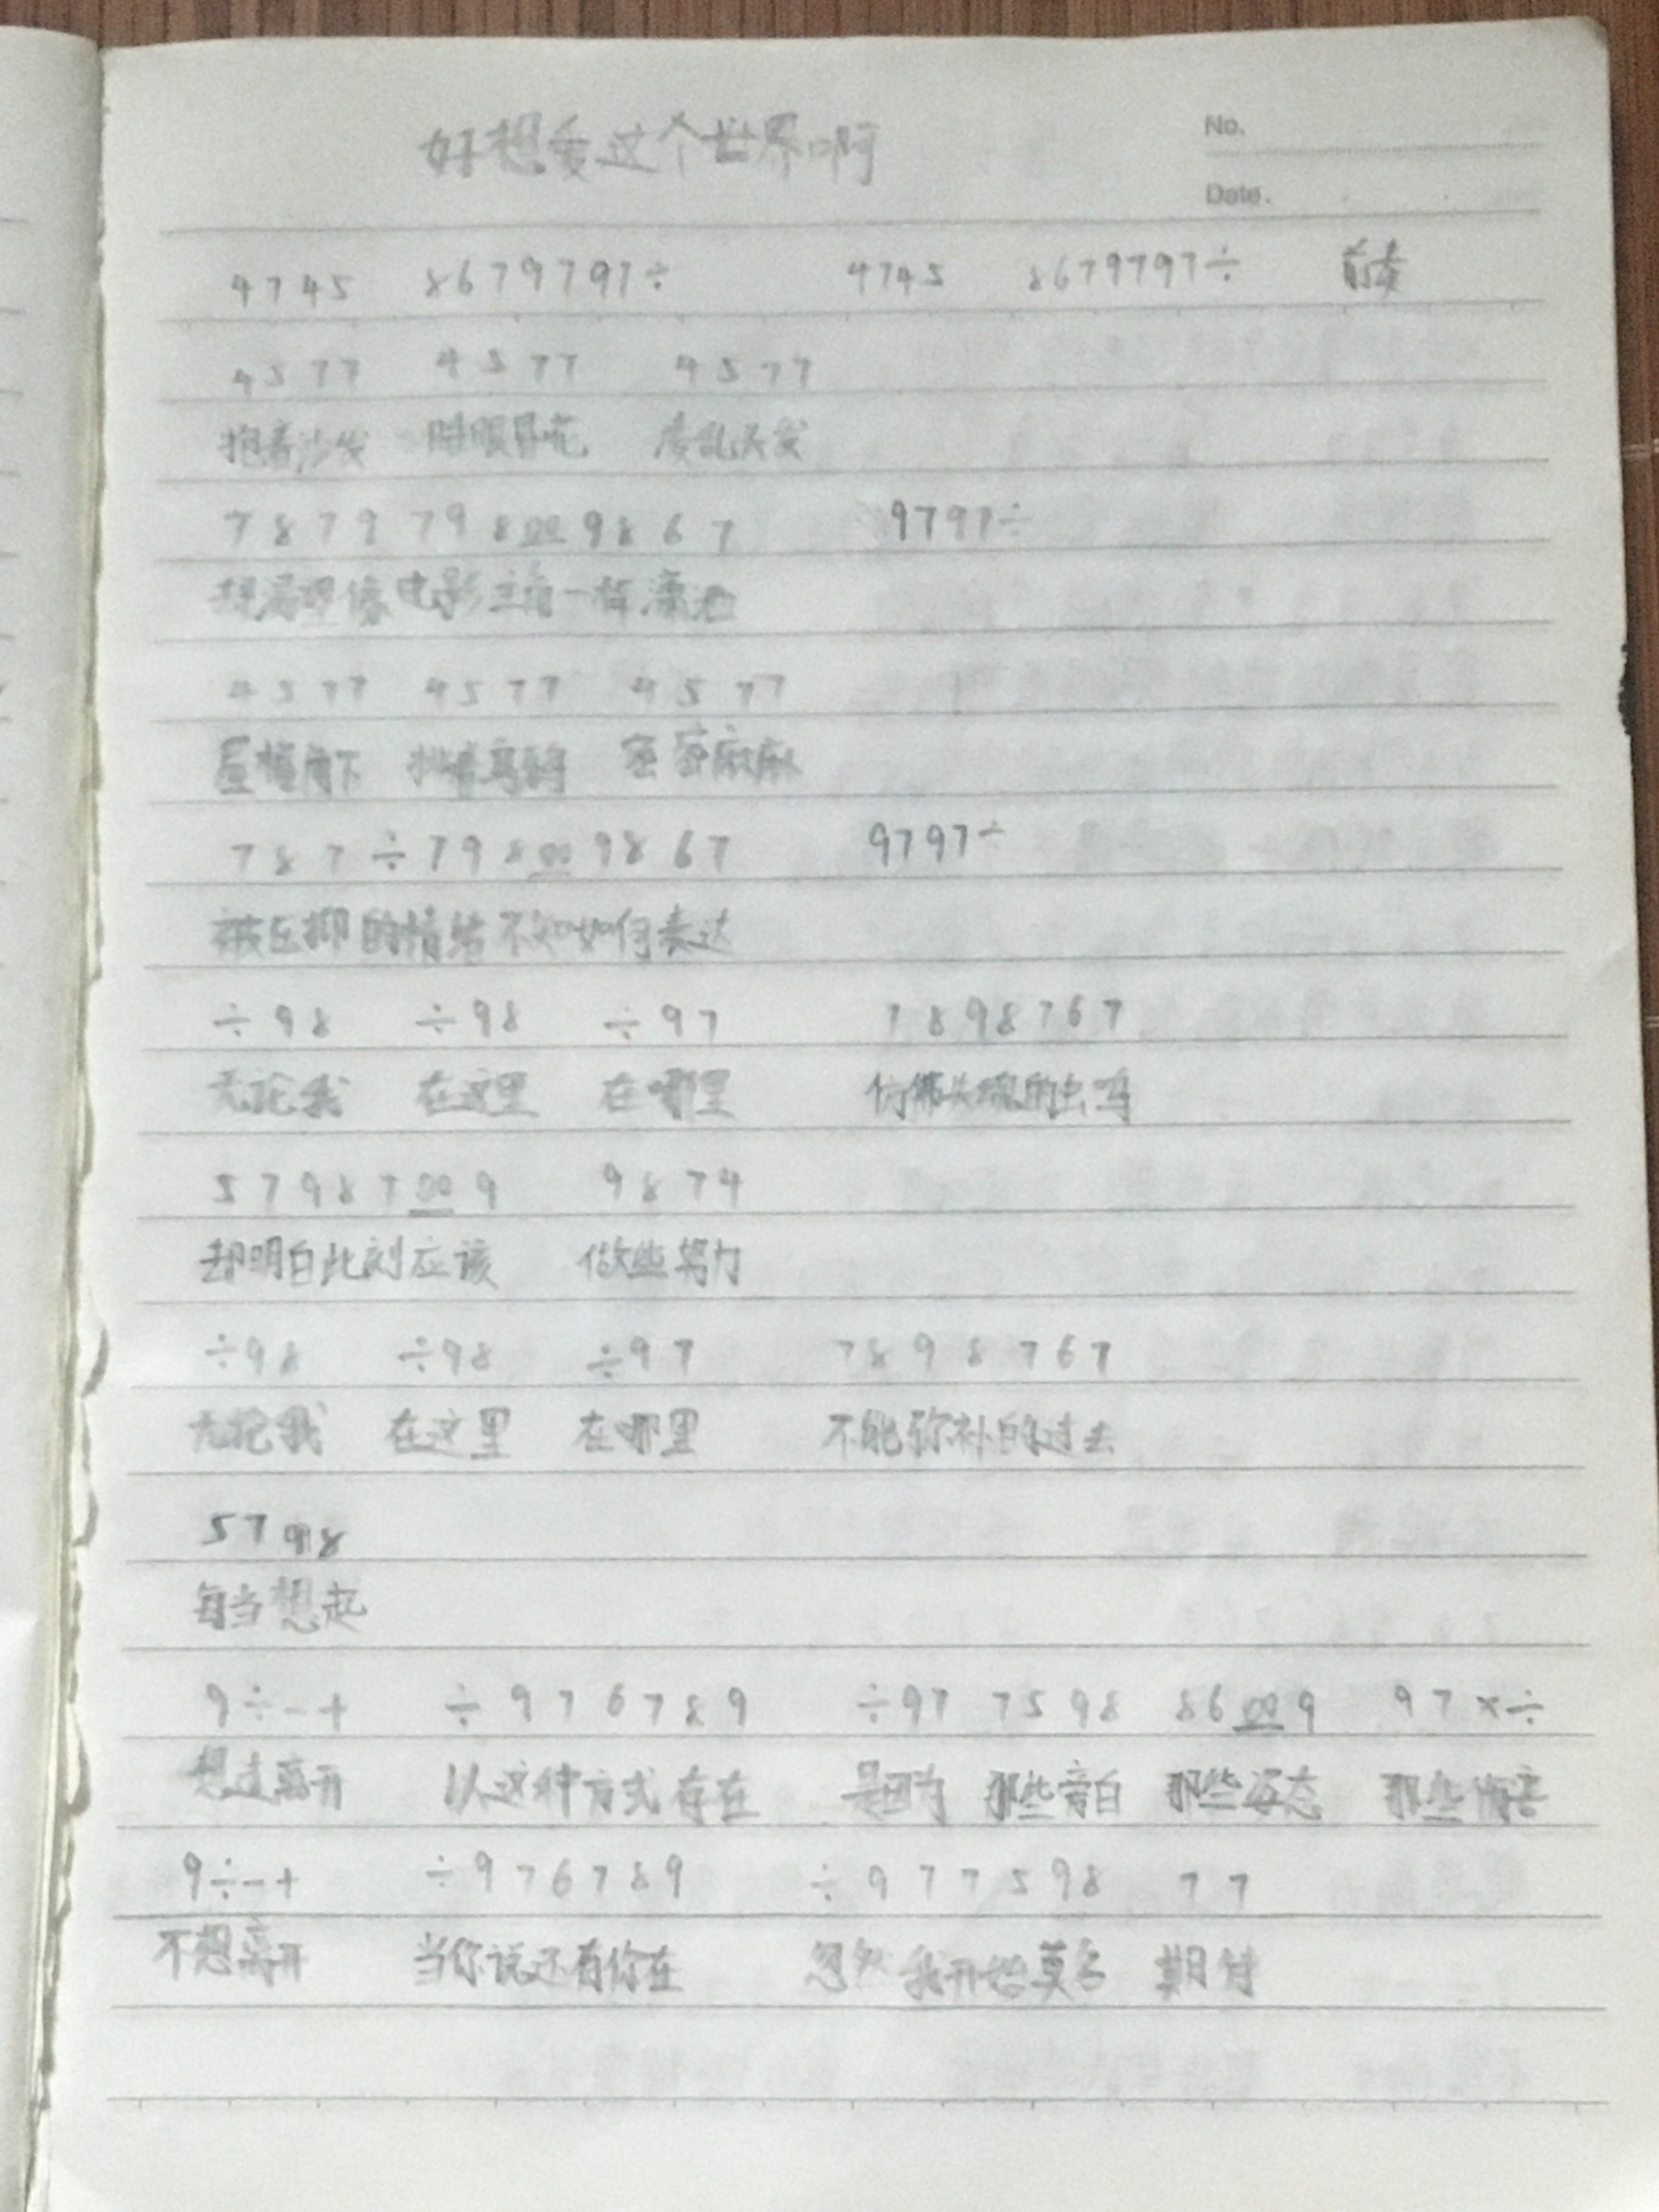 好想爱这个世界啊
No.
Date.
4745 8679797÷ 4745 8679797÷ 前奏
4577 4577 4577
抱着沙发 睡眼昏花 凌乱头发
7879 798 00 9867 9797÷
却渴望像电影主角一样潇洒
4577 4577 4577
屋檐角下 排着乌鸦 密密麻麻
787÷798 00 9867 9797÷
被压抑的情绪不知如何表达
÷98 ÷98 ÷97 7898767
无论我 在这里 在哪里 仿佛失魂的虫鸣
57987 00 9 9874
却明白此刻应该 做些努力
÷98 ÷98 ÷97 7898767
无论我 在这里 在哪里 不能弥补的过去
5798
每当想起
9÷-+ ÷976789 ÷97 7598 86 00 9 97×÷
想过离开 以这种方式存在 是因为 那些旁白 那些姿态 那些伤害
9÷-+ ÷976789 ÷977598 77
不想离开 当你说还有你在 忽然我开始莫名 期待